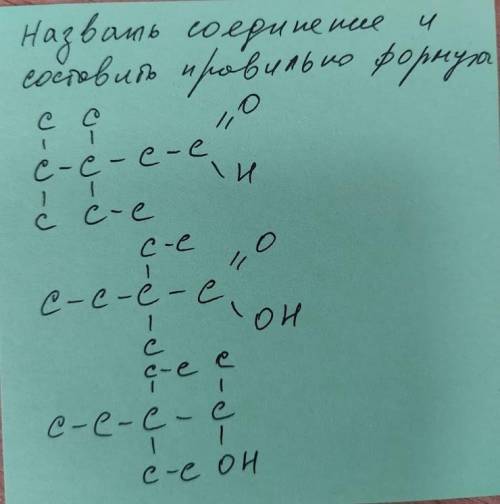 Назвать соединение и
составить правильно формулы
C C
C - C - C - C =O
H
C C - C
C - C
C - C - C - C =O
OH
C
C - C C
C - C - C - C
C - C OH